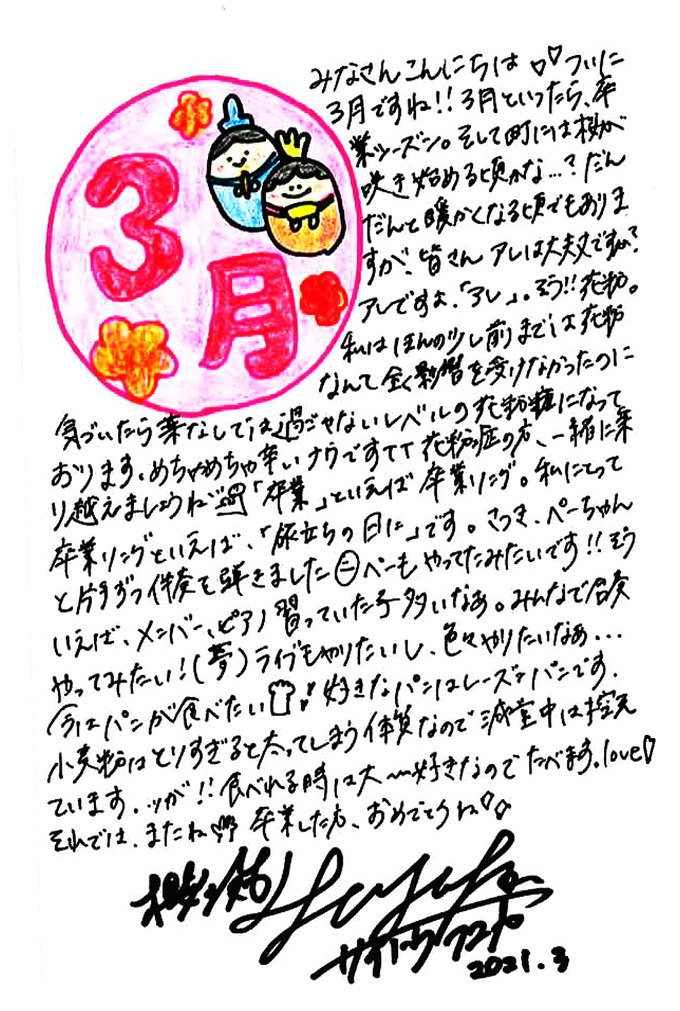 3月
みなさんこんにちは♡♡ついに
3月ですね!!3月といったら、卒
業シーズン。そして町には桜が
咲き始める頃かな…?だん
だんと暖かくなる頃でもありま
すが、皆さんアレは大丈夫ですか?
アレですよ、「アレ」。そう!!花粉。
私はほんの少し前までは花粉
なんて全く影響を受けなかったのに
気づいたら薬なしでは過ごせないレベルの花粉症になって
おります。めちゃめちゃ辛いナウですTT 花粉症の方、一緒に乗
り越えましょうね 「卒業」といえば卒業ソング。私にとって
卒業ソングといえば、「旅立ちの日に」です。さつき、ぺーちゃん
と片手ずつ伴奏を弾きました ぺーもやってたみたいです!!そう
いえば、メンバー、ピアノ習っていた子多いなあ。みんなで合奏
やってみたい!(夢)ライブもやりたいし、色々やりたいなぁ...
今はパンが食べたい 好きなパンはレーズンパンです。
小麦粉はとりすぎると太ってしまう体質なので減量中は控え
ています。ッが!!食べれる時は大〜好きなのでたべます。love♡
それでは、またね 卒業した方、おめでとうね♡♡
サイトウフユカ
2021.3